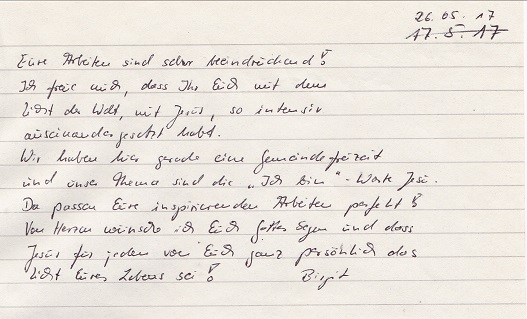 26.05.17
17.5.17
Eure Arbeiten sind sehr beeindruckend!
Ich freue mich, dass Ihr Euch mit dem
Licht der Welt, mit Jesus, so intensiv
auseinandergesetzt habt.
Wir haben hier gerade eine Gemeindefreizeit
und unser Thema sind die „Ich bin"-Worte Jesu.
Da passen Eure inspirierenden Arbeiten perfekt!
Von Herzen wünsche ich Euch Gottes Segen und dass
Jesus für jeden von Euch ganz persönlich das
Licht Eures Lebens sei! Birgit